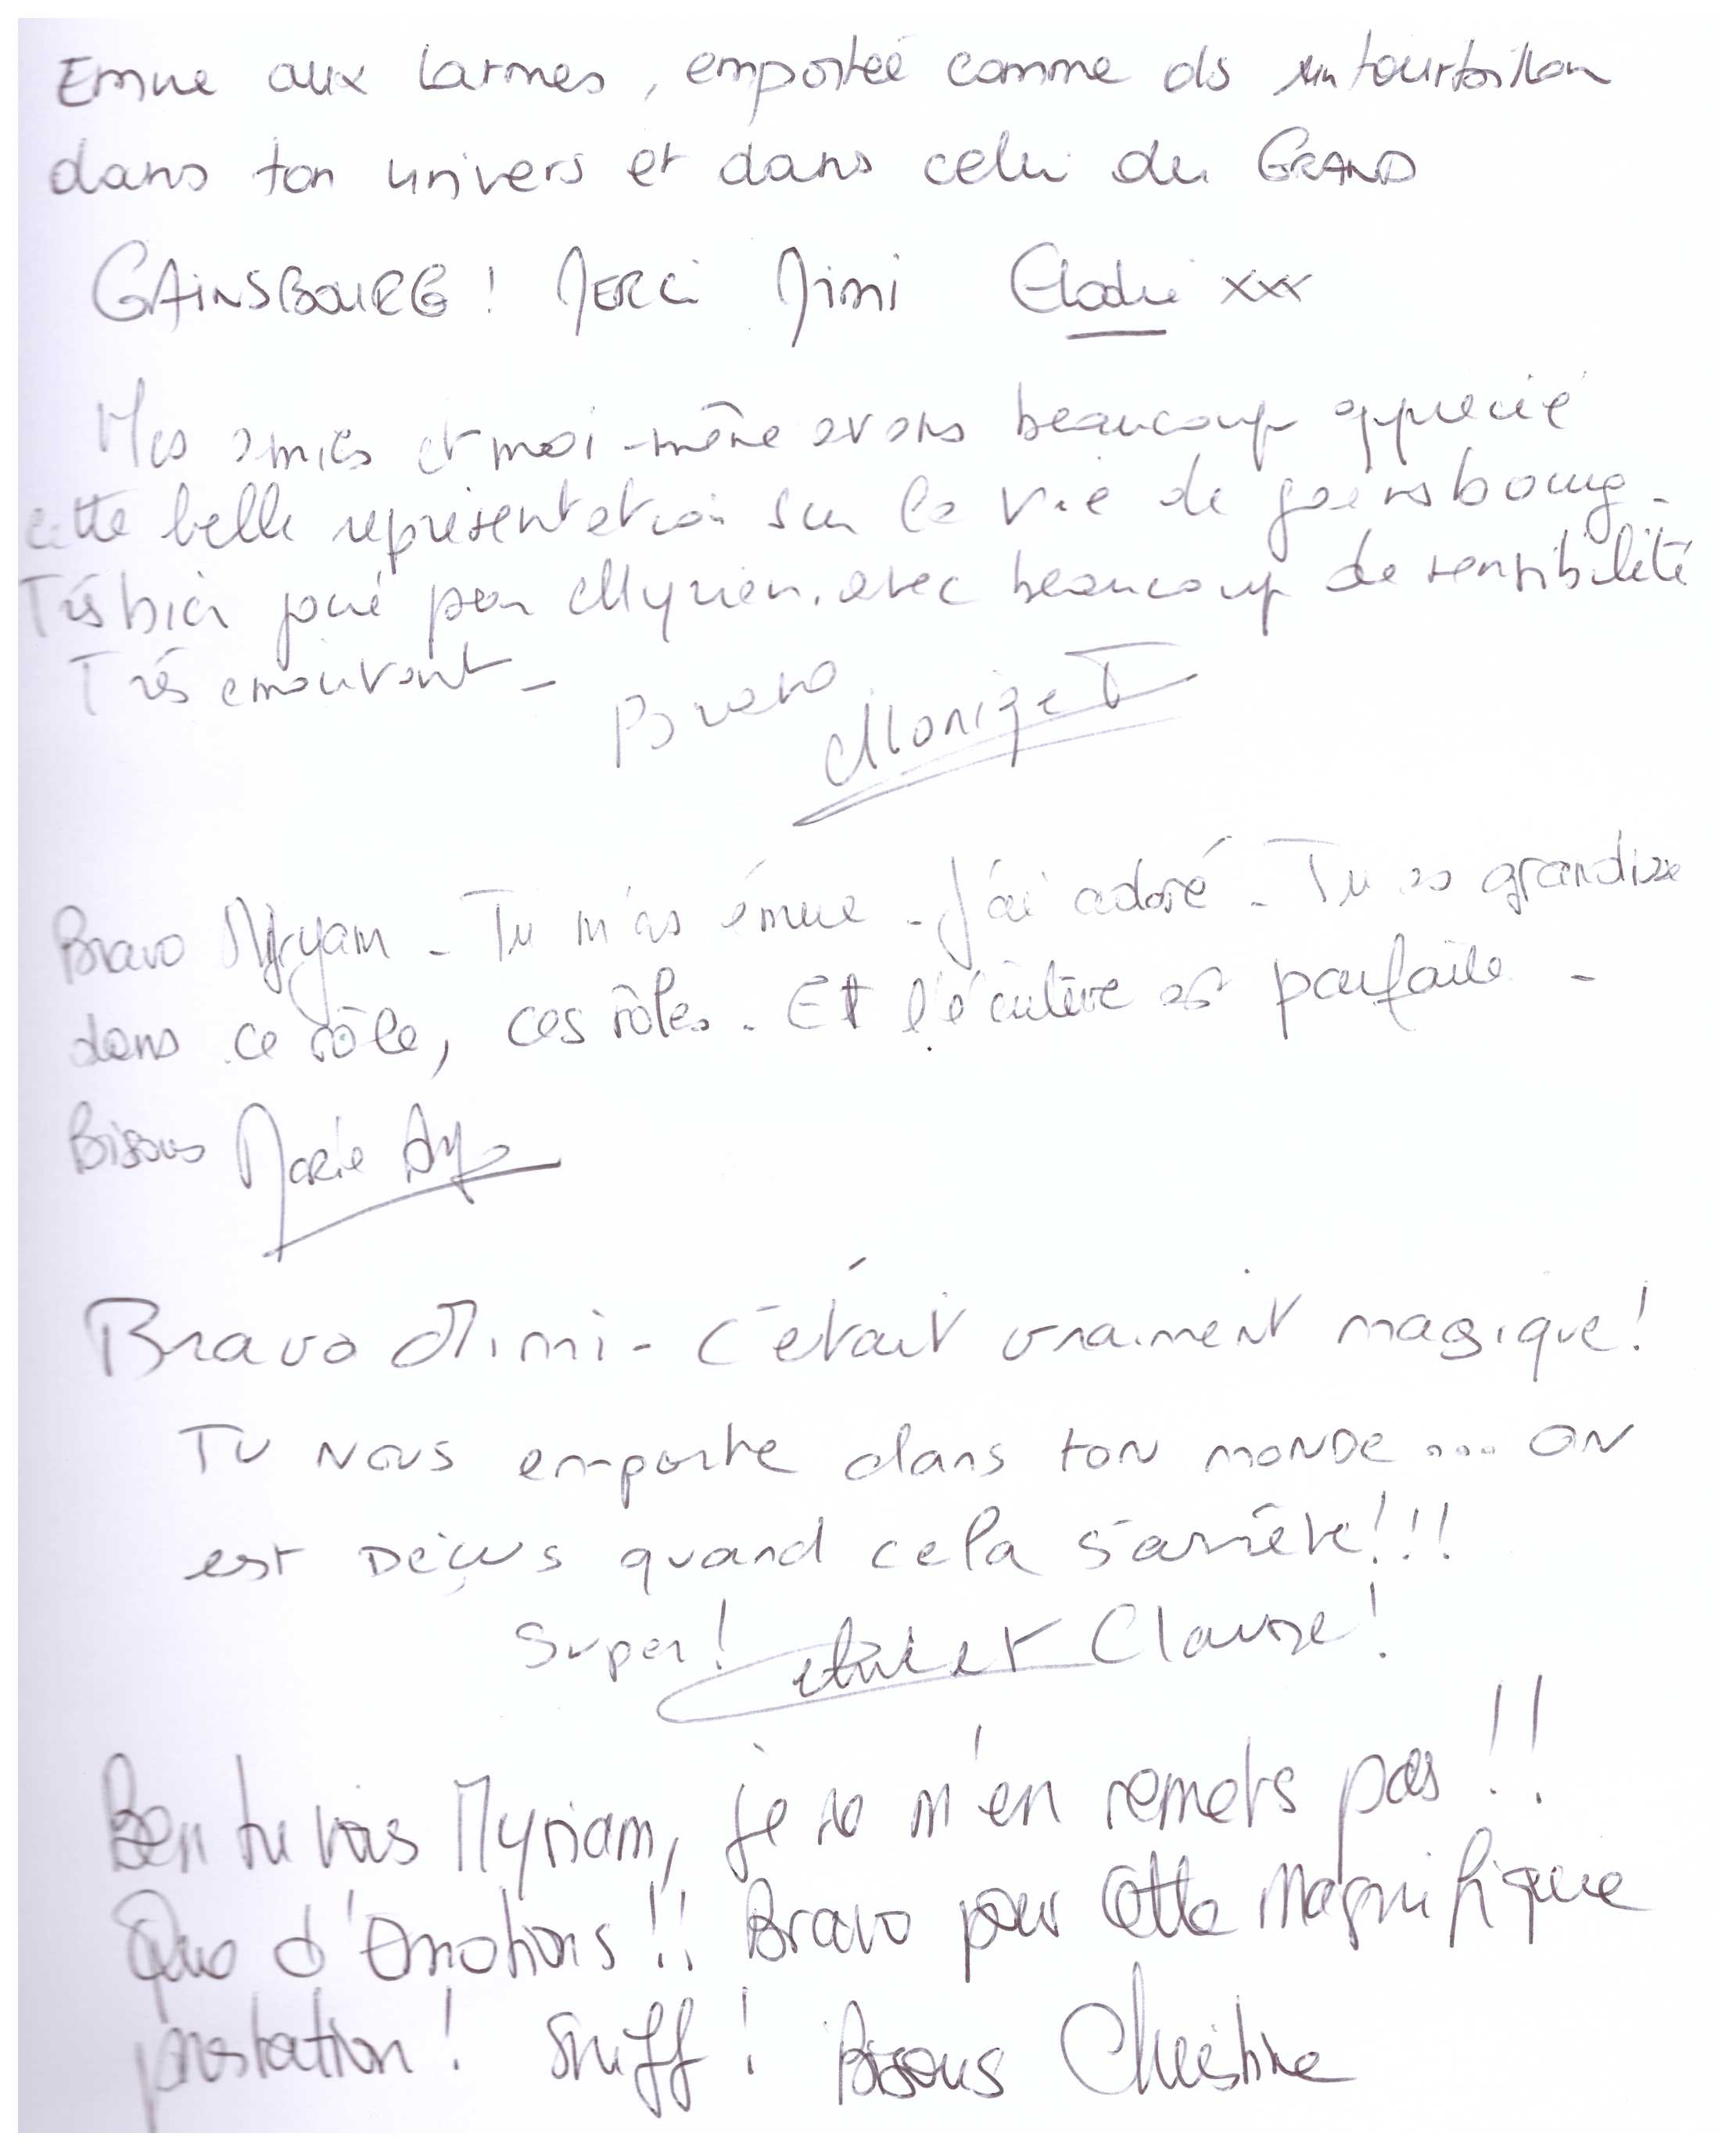 Emue aux larmes, emportée comme ds un tourbillon
dans ton univers et dans celui du GRAND
GAINSBOURG ! MERCi Mimi Elodie xxx
Mes amies et moi-même avons beaucoup apprécié
cette belle représentation sur la vie de gainsbourg -
Très bien joué par Myrien. avec beaucoup de sensibilité
Très émouvant - Bravo
Monique T
Bravo Myryam - Tu m'as émue - J'ai adoré - Tu es grandiose
dans ce rôle, ces rôles. Et l'écriture est parfaite -
Bisous Marie
Bravo Mimi - C'était vraiment magique !
TU NOUS emporte dans ton monDe .... ON
est Déçus quand cela s'arrête !!!
Super ! et Clausse !
Ben tu vois Myriam, je ne m'en remets pas !!
Que d'Emotions !! Bravo pour cette Magnifique
prestation ! Sniff ! Bisous Christine